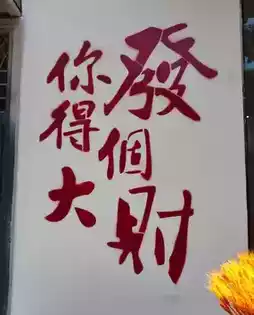 發個財
你得大